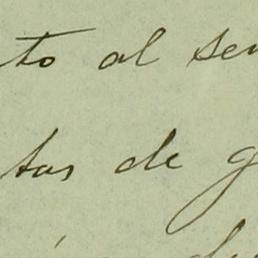 to al ser
tas de g